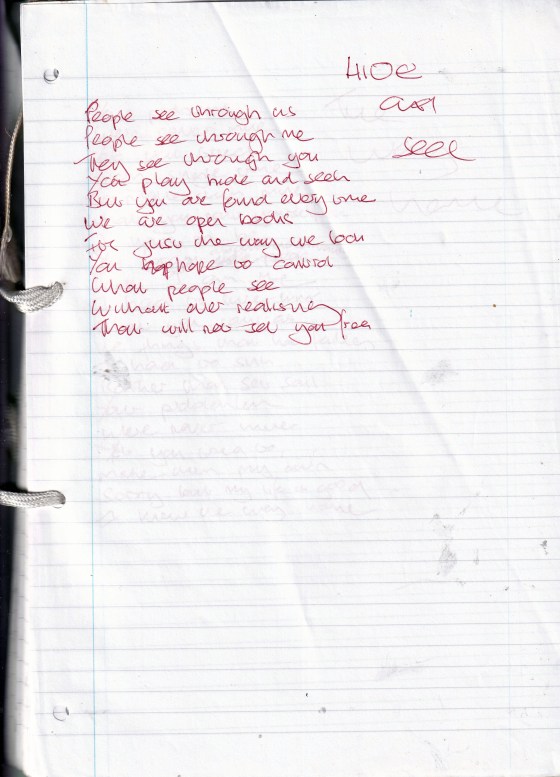 HIDE
and
seek
People see through us
People see through me
They see through you
You play hide and seek
But you are found every time
We are open books
It's just the way we look
You hope to control
What people see
Without ever realising
That will not set you free